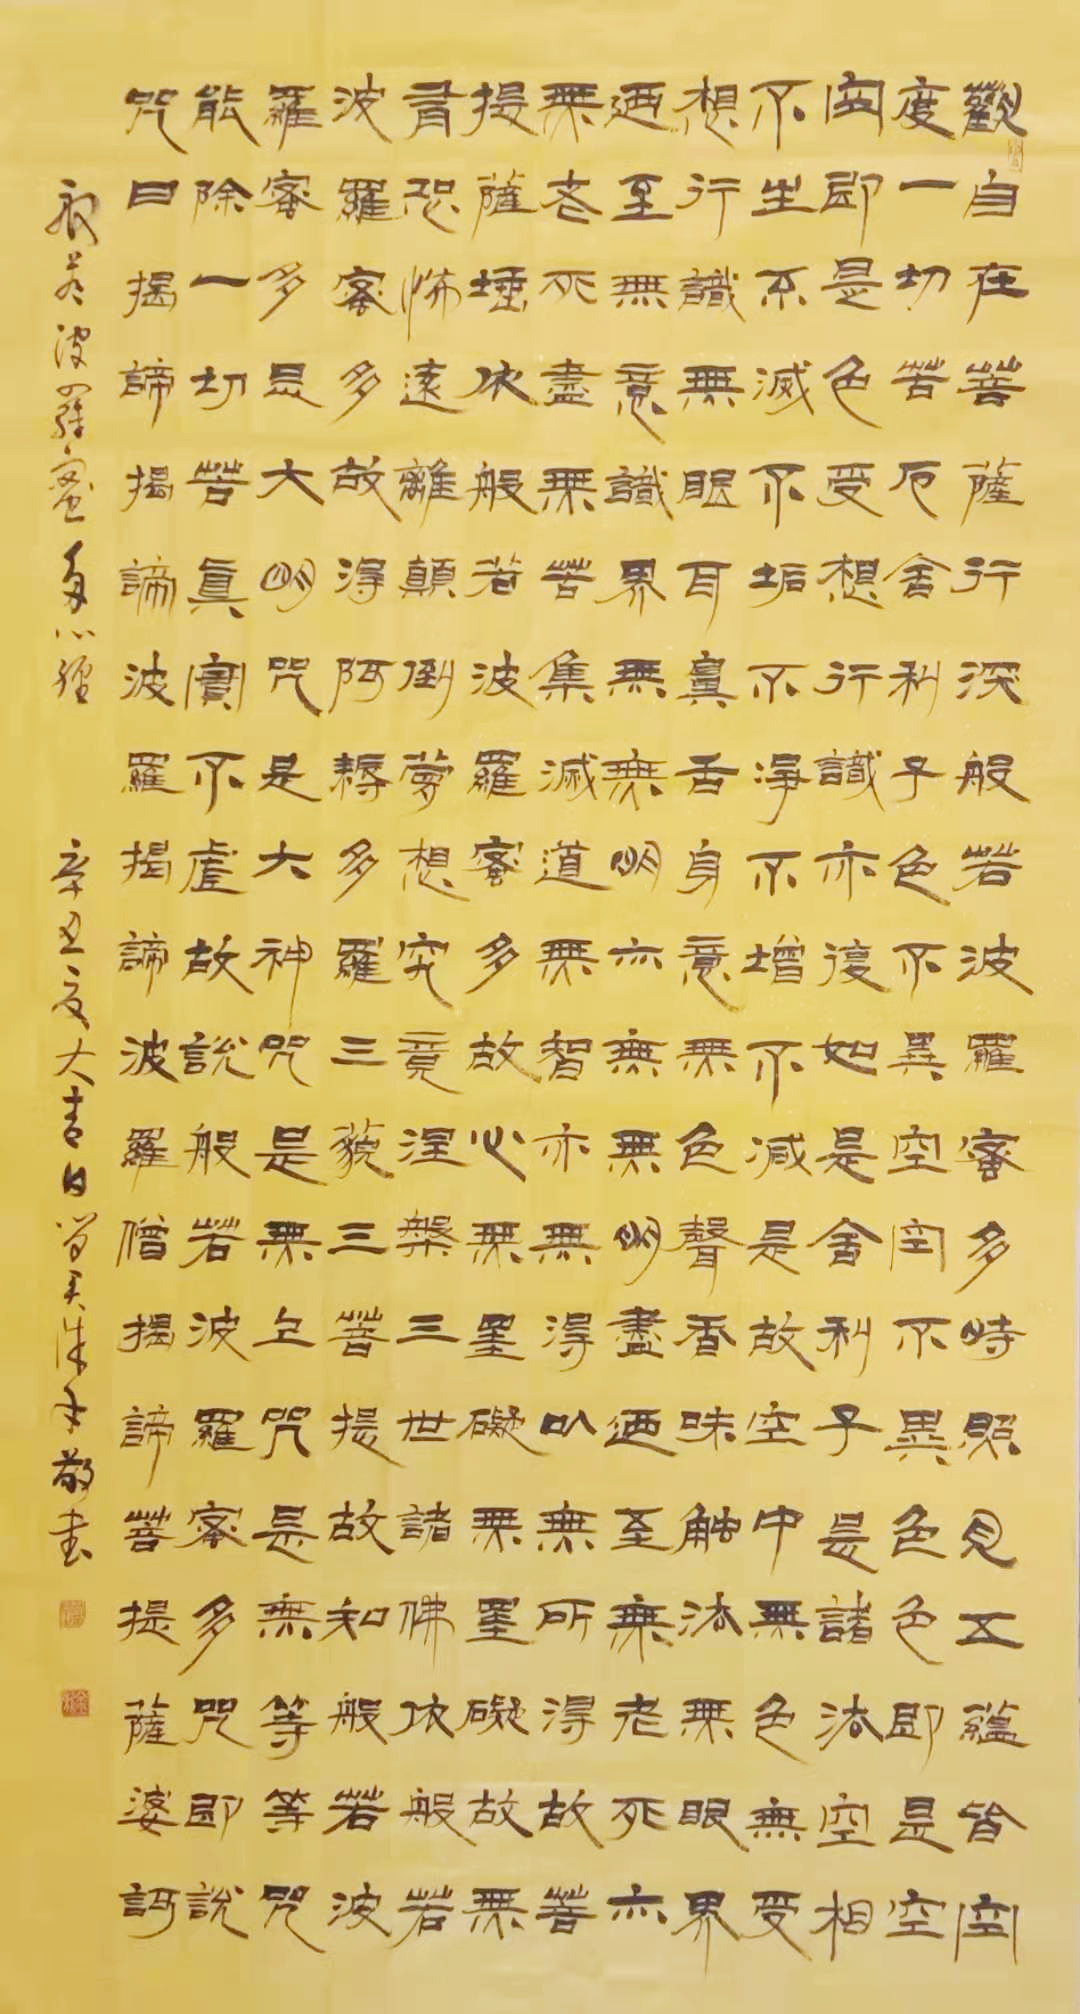 觀自在菩薩行深般若波羅蜜多時照見五蘊皆空
度一切苦厄舍利子色不異空空不異色色即是空
空即是色受想行識亦復如是舍利子是諸法空相
不生不滅不垢不淨不增不減是故空中無色無受
想行識無眼耳鼻舌身意無色聲香味觸法無眼界
迺至無意識界無無明亦無無明盡迺至無老死亦
無老死盡無苦集滅道無智亦無得以無所得故菩
提薩埵依般若波羅蜜多故心無罣礙無罣礙故無
有恐怖遠離顛倒夢想究竟涅槃三世諸佛依般若
波羅蜜多故得阿耨多羅三藐三菩提故知般若波
羅蜜多是大明咒是大神咒是無上咒是無等等咒
能除一切苦真實不虛故說般若波羅蜜多咒即說
咒曰揭諦揭諦波羅揭諦波羅僧揭諦菩提薩婆訶
般若波羅蜜多心經 辛丑夏大吉日敬書